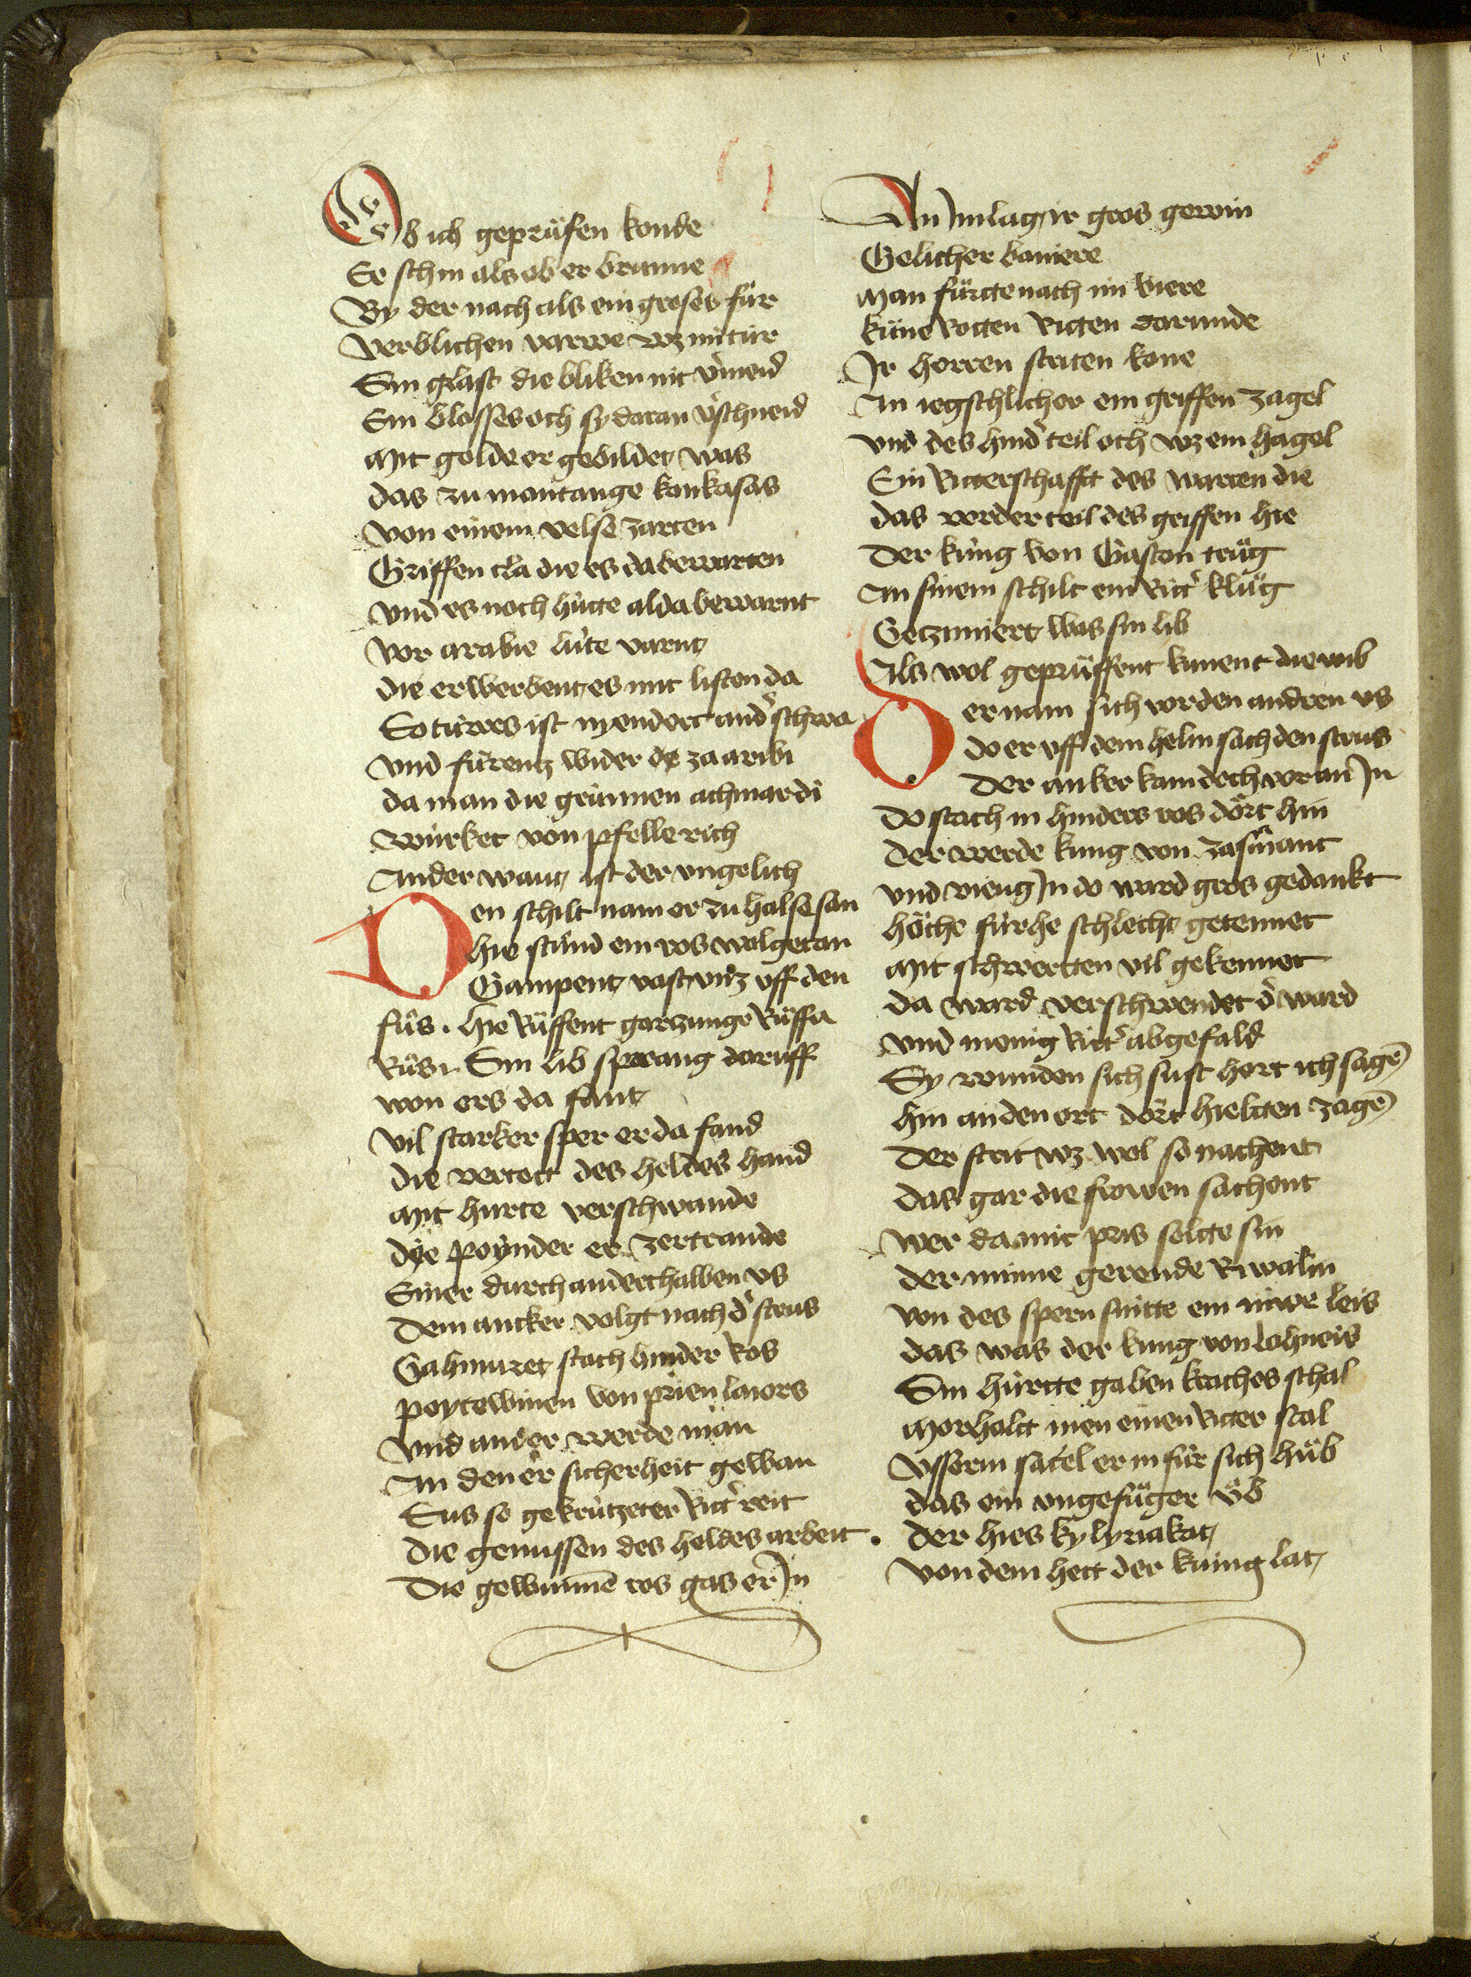 Ob ich geprüfen konde
Er schin als ob er brunne
By der nach als ein groses für
Verblichen varwe wz im tür
Sin glast die bliken nit v̾meid
Ein blosses och sy daran v̾schneid
Mit golde er gebildet was
das zu montange koukasas
Von einem velse zarten
Griffen cla die es da bewarten
Vnd es noch hütte alda bewarnt
Vor arabie lüte varnt
die erwerbent es mit listen da
So türres ist nyendert and̾ schwa
Vnd fürentz wider ze arabi
da man die grünnen achmardi
Würket von pfelle rich
Ander want ist der vngelich
Den schilt nam er zu halse san
hie stůnd ein ros wolgetan
Gampent vast vntz vff den
fůs . hie Rüffent garzunge Růffa
Růs . Sin lib sprang daruff
won ers da fant
Vil starker sper er da fand
die vertett des heldes hand
Mit hurte verschwande
dye poynder er zertrande
Einer durch anderthalben vs
Dem ancker volgt nach d̾ strus
Gahmuret stach hinder Ros
poytewinen von prienlaiors
Vnd ander werde man
An den er sicherheit gewan
Sus so gekrützeter Ritt̾ reit
die genussen des heldes arbeit .
Die gewunnē ros gab er In
An Im lag ir gros gewin
Gelicher baniere
Man fürtte nach im viere
küne Rotten Ritten darunde
Ir herren striten kone
An iegschlicher ein griffen zagel
vnd des hind̾ teil och wz ein hagel
Ein Ritterschafft des warten die
das vorder teil des griffen hie
Der küng von Gascon trůg
An sinem schilt ein Ritt̾ klůg
Getzimiert was sin lib
Als wol geprüffent kunent die wib
Der nam sich vor den andren vs
do er vff dem helm sach den strus
Der anker kam doch vor an In
Do stach in hinders ros dört hin
Der werde küng von zasamant
vnd vieng In do ward gros gedankt
höche fürhe schlecht getennet
Mit schwertten vil gekemmet
da ward verschwendet d̾ ward
vnd menig Ritt̾ abgefald
Sy wunden sich sust hort ich sagē
hin an den ort dört hieltten zagē
Der strit wz wol so nachent
das gar die frowen sachent
Wer da mit pris soltte sin
der minne gerende Riwalin
von des spern snitte ein niwe leis
das was der küng von lohneis
Sin hürtte gaben kraches schal
Morholtt inen einen Ritter stal
Vsserm satel er in für sich hůb
das ein vngefüger vb
Der hies kyllyriakat
Von dem hett der küng lat